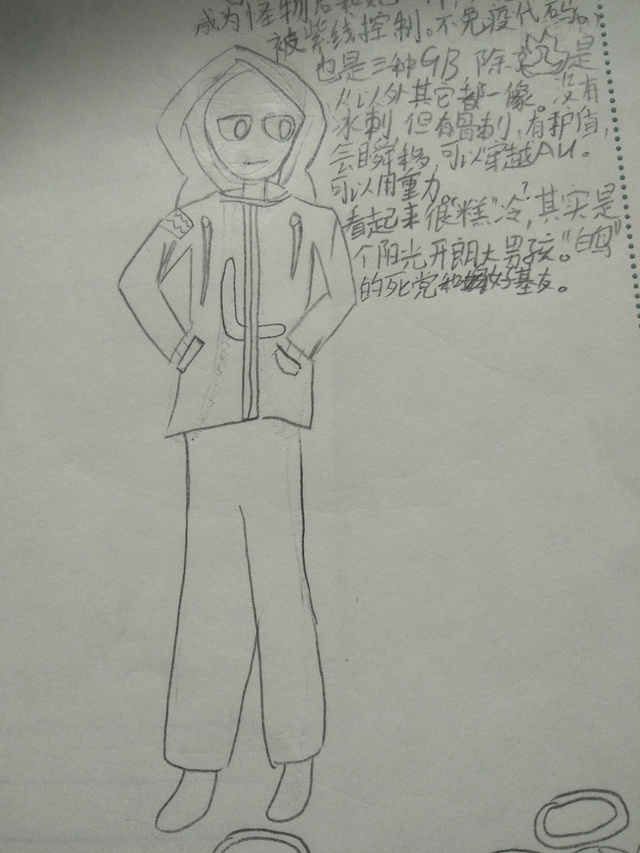 成为怪物后和她一
被紫线控制。不免疫代码。
也是三种GB 除 是
以外其它都一像。没有
冰刺 但有骨刺,有护盾,
会瞬移,可以穿越AU。
可以用重力。
看起来很“糕”冷?,其实是
个阳光开朗大男孩。“白鸣”
的死党和好基友。